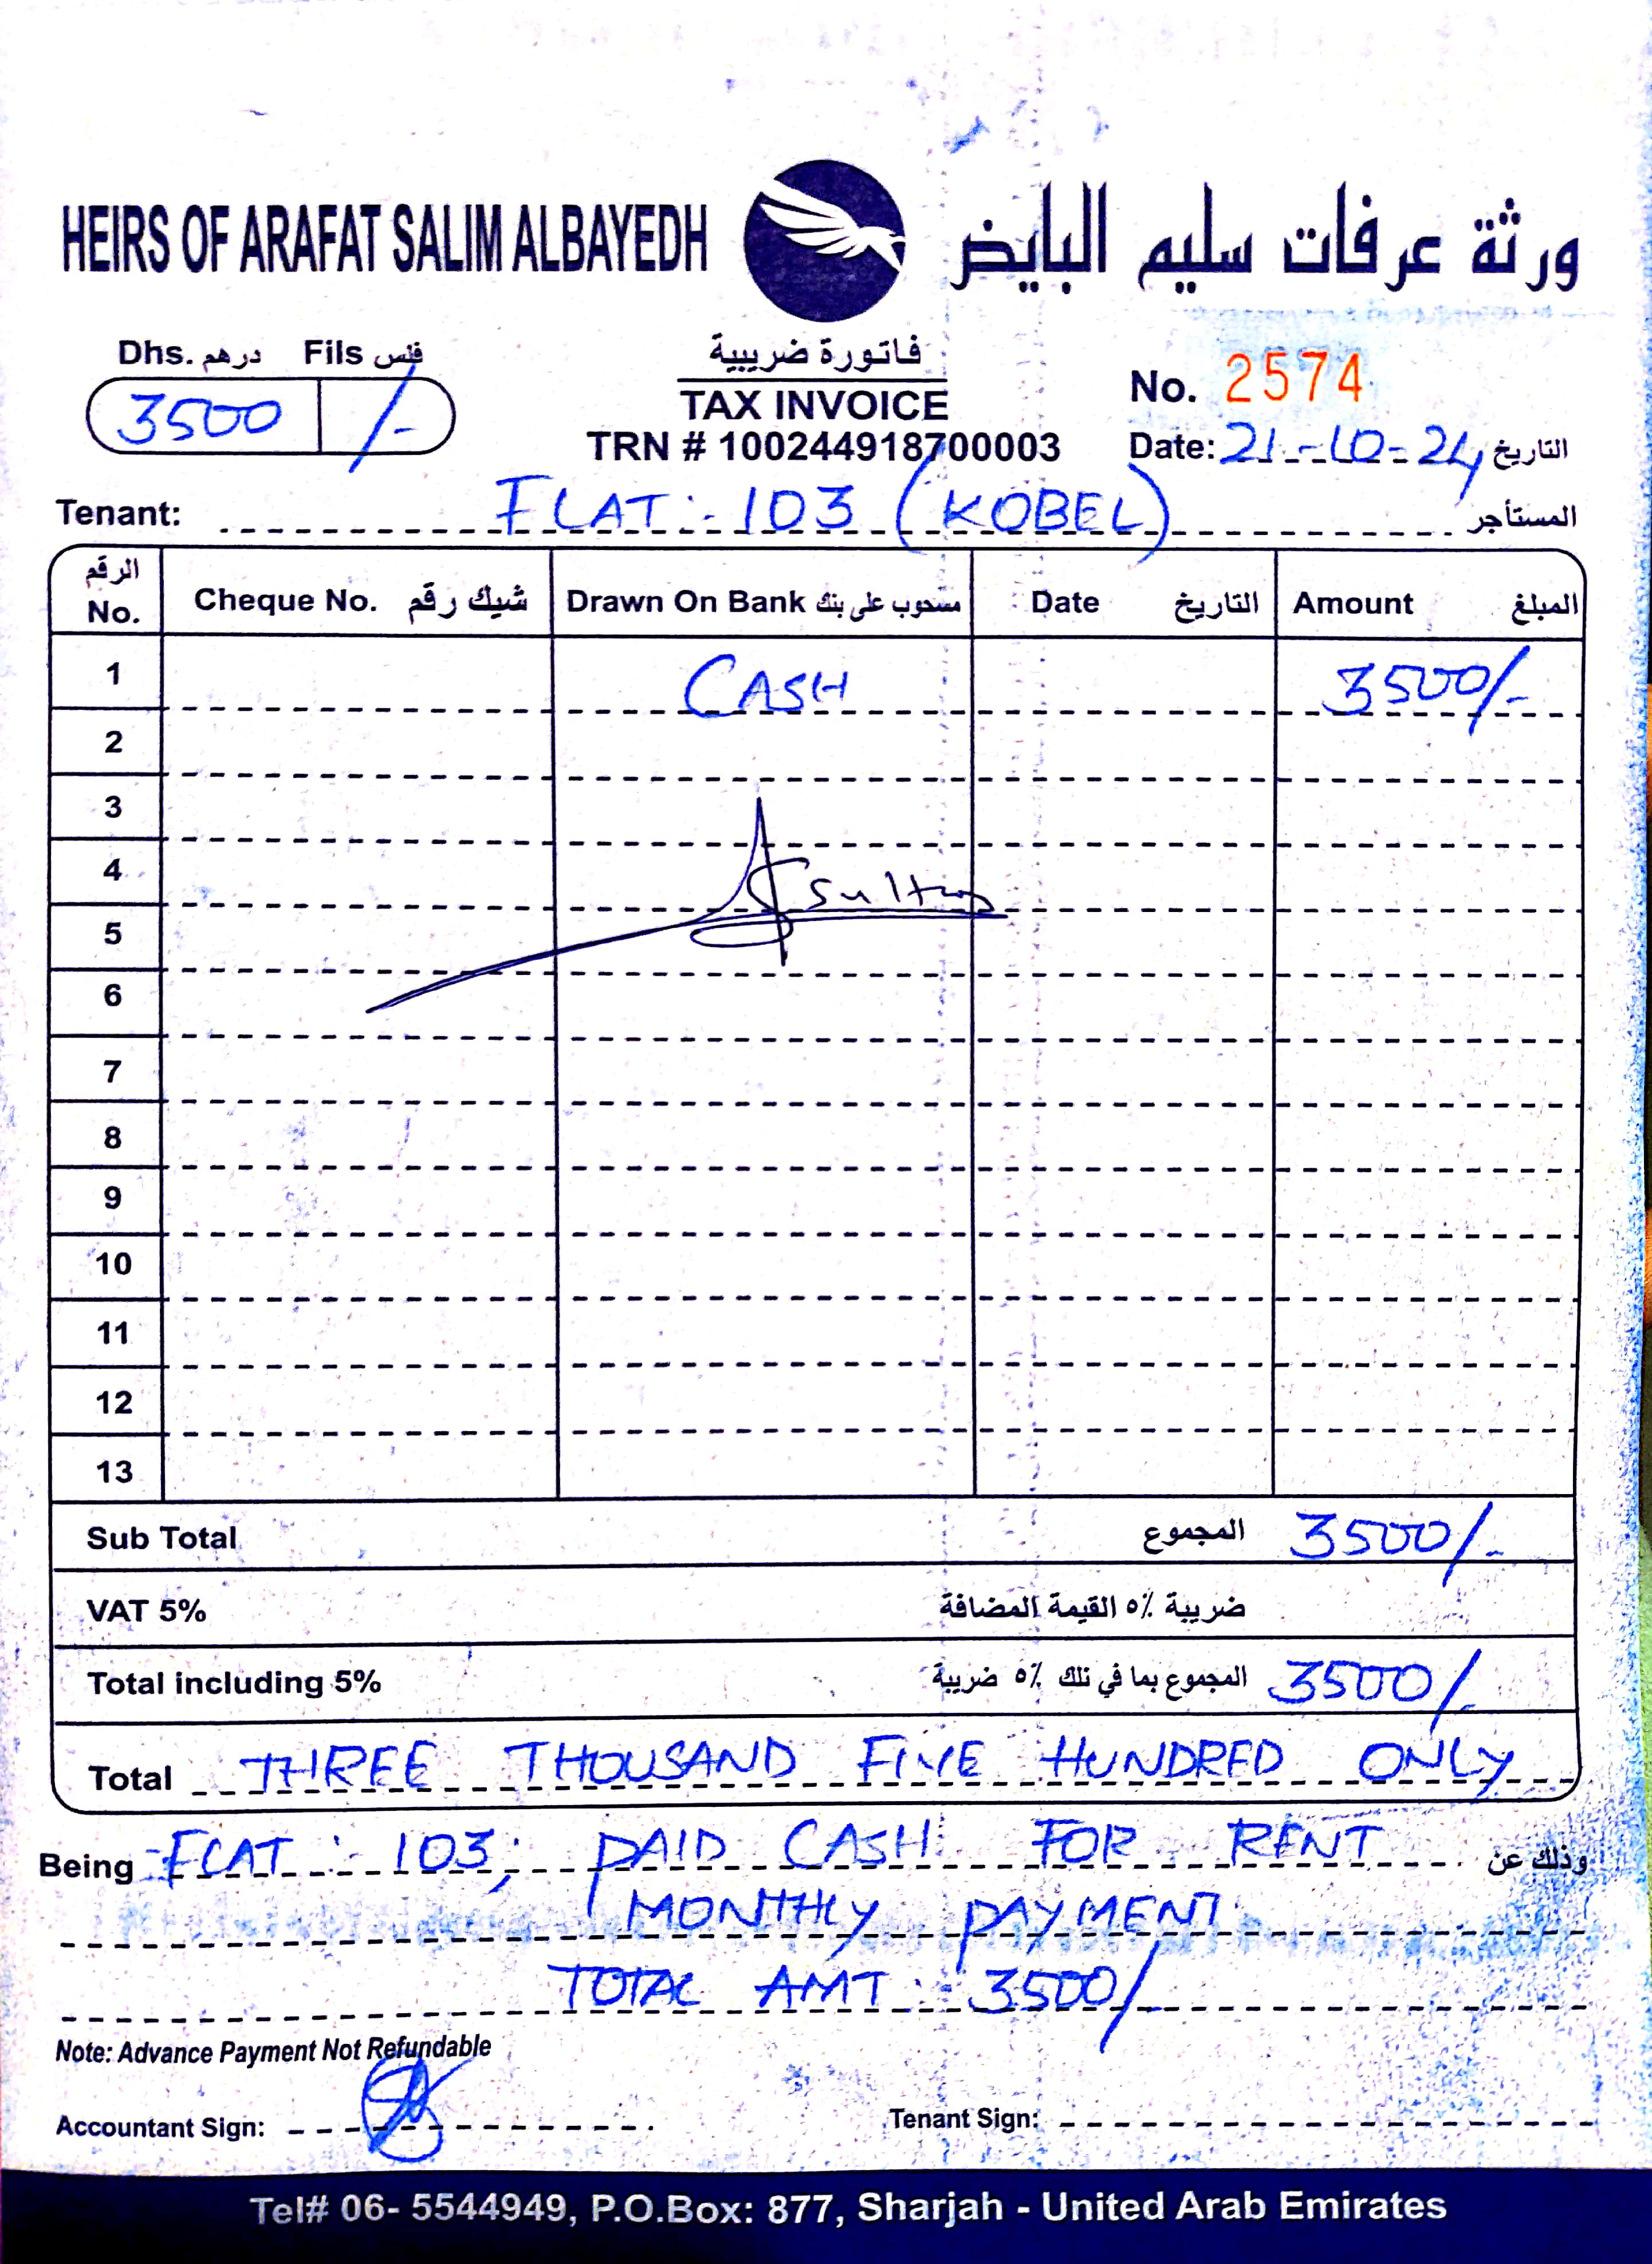 HEIRS OF ARAFAT SALIM ALBAYEDH ورثة عرفات سليم البايض
Dhs. درهم Fils فلس
3500 /-
فاتورة ضريبية
TAX INVOICE
TRN # 100244918700003
No. 2574
Date: 21-10-24 التاريخ
Tenant: FLAT:- 103 (KOBEL) المستأجر
الرقم No. Cheque No. شيك رقم Drawn On Bank مسحوب على بنك Date التاريخ Amount المبلغ
1 CASH 3500/-
2
3
4 Sultan
5
6
7
8
9
10
11
12
13
Sub Total المجموع 3500/-
VAT 5% ضريبة ٥٪ القيمة المضافة
Total including 5% المجموع بما في تلك ٥٪ ضريبة 3500/-
Total THREE THOUSAND FIVE HUNDRED ONLY
Being FLAT : 103, PAID CASH FOR RENT وذلك عن
MONTHLY PAYMENT
TOTAL AMT : 3500/-
Note: Advance Payment Not Refundable
Accountant Sign: Tenant Sign:
Tel# 06- 5544949, P.O.Box: 877, Sharjah - United Arab Emirates